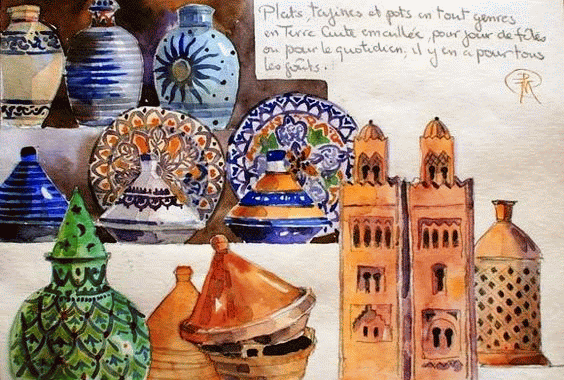 Plats, tagines et pots en tout genres
en Terre Cuite emaillée, pour jour de fêtes
ou pour le quotidien, il y en a pour tous
les goûts.